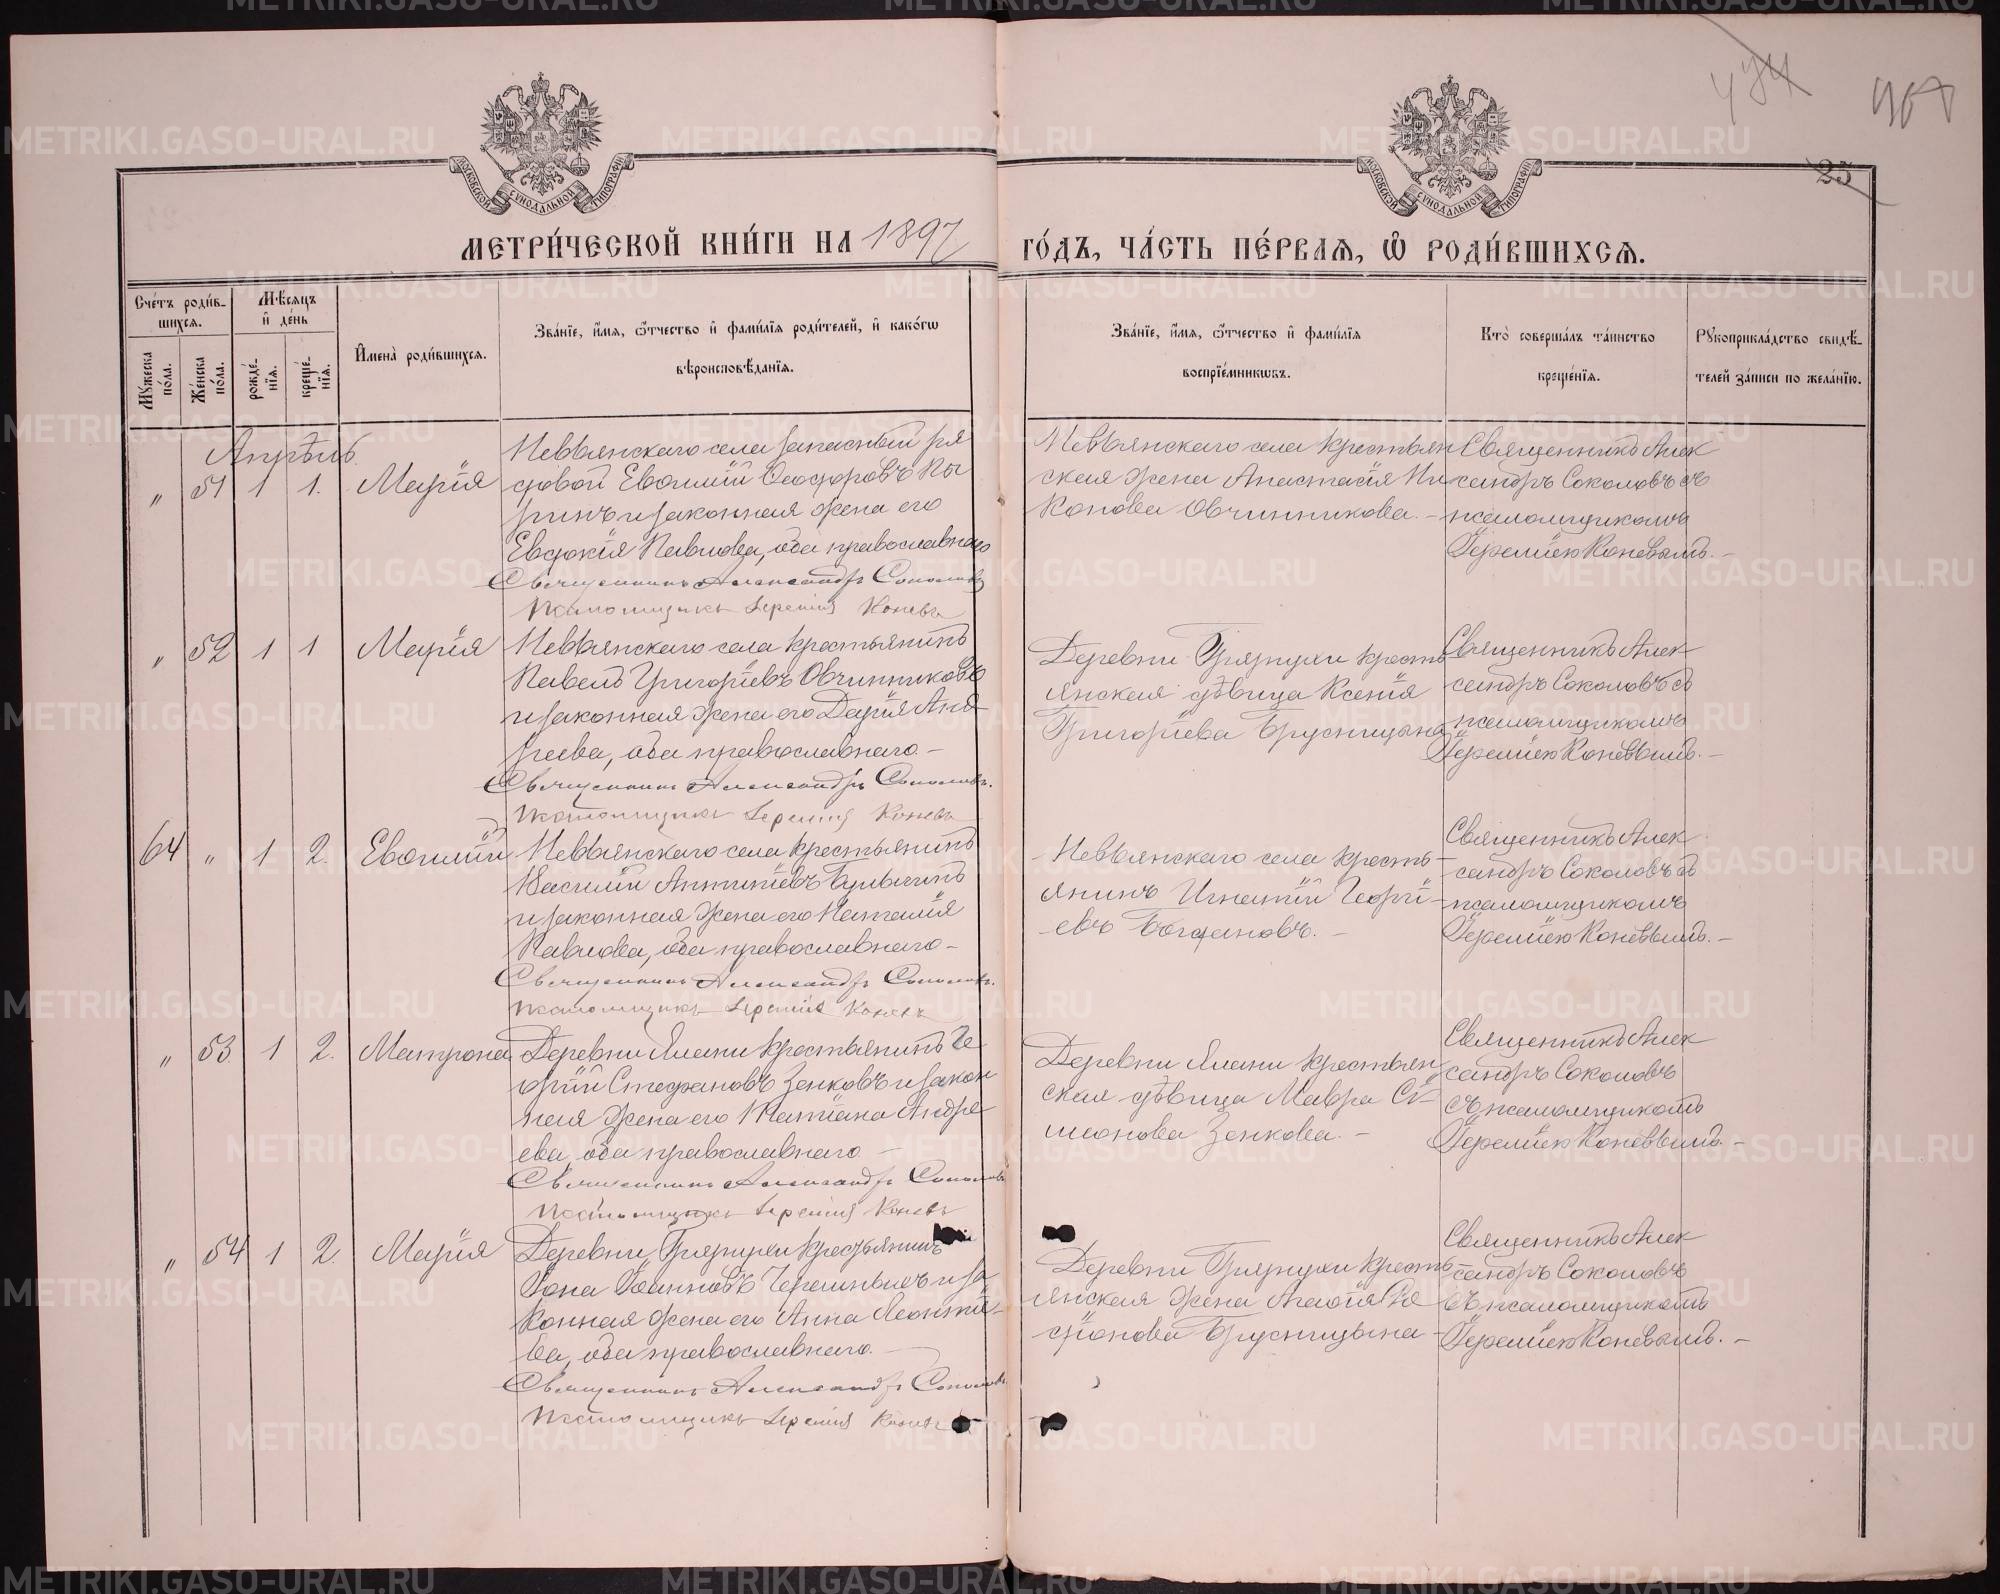 474
467
25
МОСКОВСКОЙ СѴНОДАЛЬНОЙ ТИПОГРАФІИ
МОСКОВСКОЙ СѴНОДАЛЬНОЙ ТИПОГРАФІИ
МЕТРИ́ЧЕСКОЙ КНИ́ГИ НА 1897 ГО́ДЪ, ЧА́СТЬ ПЕ́РВАѦ, Ѽ РОДИ́ВШИХСѦ.
Сче́тъ роди́в-
шихсѧ.
Мꙋ́жеска по́ла.
Же́нска по́ла.
Мѣ́сѧцъ и҆ де́нь
рожде́-
нїѧ.
креще́-
нїѧ.
И҆мена̀ роди́вшихсѧ.
Зва́нїе, и҆́мѧ, ѻ҆́тчество и҆ фами́лїѧ роди́телей, и҆ како́гѡ
вѣроисповѣ́данїѧ.
Зва́нїе, и҆́мѧ, ѻ҆́тчество и҆ фами́лїѧ
воспрїе́мникѡвъ.
Кто̀ соверша́лъ та́инство
креще́нїѧ.
Рꙋкоприкла́дство свидѣ́-
телей за́писи по жела́нїю.
Апрѣль.
" 51 1 1. Марія
Невьянскаго села запасный ря
довой Евѳимій Ѳеодоровъ Пы
ринъ и законная жена его
Евдокія Павлова, оба православнаго
Священникъ Александръ Соколовъ
Псаломщикъ Іеремія Коневъ
Невьянскаго села крестьян
ская жена Анастасія Ни
конова Овчинникова. -
Священникъ Алек
сандръ Соколовъ съ
псаломщикомъ
Іереміею Коневымъ. -
" 52 1 1 Марія
Невьянскаго села крестьянинъ
Павелъ Григоріевъ Овчинниковъ
и законная жена его Дарія Анд
реева, оба православнаго -
Священникъ Александръ Соколовъ.
Псаломщикъ Іеремія Коневъ
Деревни Грязнухи кресть
янская дѣвица Ксенія
Григоріева Брусницына
Священникъ Алек
сандръ Соколовъ съ
псаломщикомъ
Іереміею Коневымъ. -
64 " 1 2. Евѳимій
Невьянскаго села крестьянинъ
Василій Антиповъ
и законная жена его Наталія
Павлова, оба православнаго -
Священникъ Александръ Соколовъ.
Псаломщикъ Іеремія Коневъ
Невьянскаго села кресть-
янинъ Игнатій Георгі-
евъ Богдановъ. -
Священникъ Алек
сандръ Соколовъ съ
псаломщикомъ
Іереміею Коневымъ. -
" 53. 1 2. Матрона
Деревни Ялани крестьянинъ Ге
оргій Стефановъ Зенковъ и закон
ная жена его Татіана Андре
ева, оба православнаго -
Священникъ Александръ Соколовъ
Псаломщикъ Іеремія Коневъ
Деревни Ялани крестьян
ская дѣвица Мавра Сѵ-
меонова Зенкова. -
Священникъ Алек
сандръ Соколовъ
съ псаломщикомъ
Іереміею Коневымъ. -
" 54 1 2. Марія
Деревни Грязнухи крестьянинъ
Іона Іоанновъ Черемныхъ и за
конная жена его Анна Леонтіе-
ва, оба православнаго. -
Священникъ Александръ Соколовъ.
Псаломщикъ Іеремія Коневъ
Деревни Грязнухи кресть
янская жена Агаѳія Ро
діонова Брусницына -
Священникъ Алек
сандръ Соколовъ
съ псаломщикомъ
Іереміею Коневымъ. -
METRIKI.GASO-URAL.RU